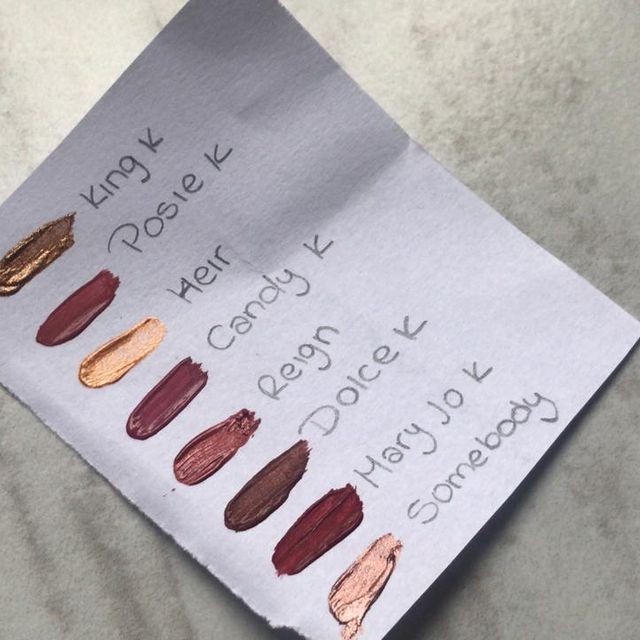 King K
Posie K
Heir
Candy K
Reign
Dolce K
Mary Jo K
Somebody